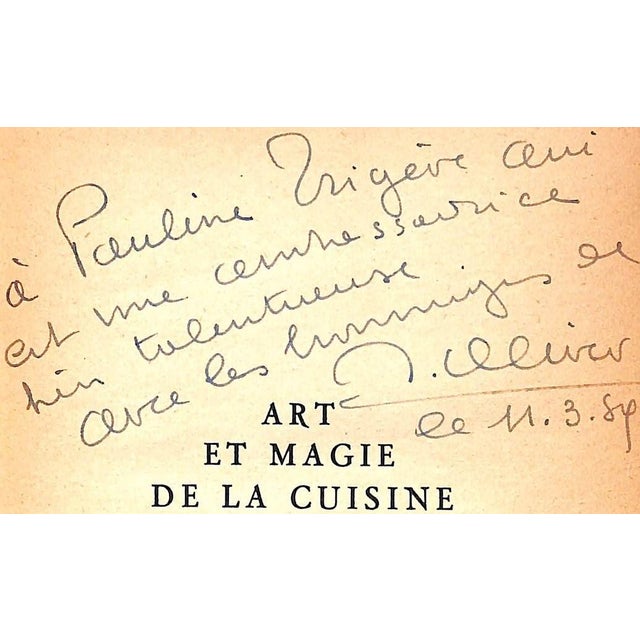 à Pauline Trigère qui
est une ambassadrice
talentueuse
avec les hommages de
R. Oliver
le 11.3.59
ART
ET MAGIE
DE LA CUISINE